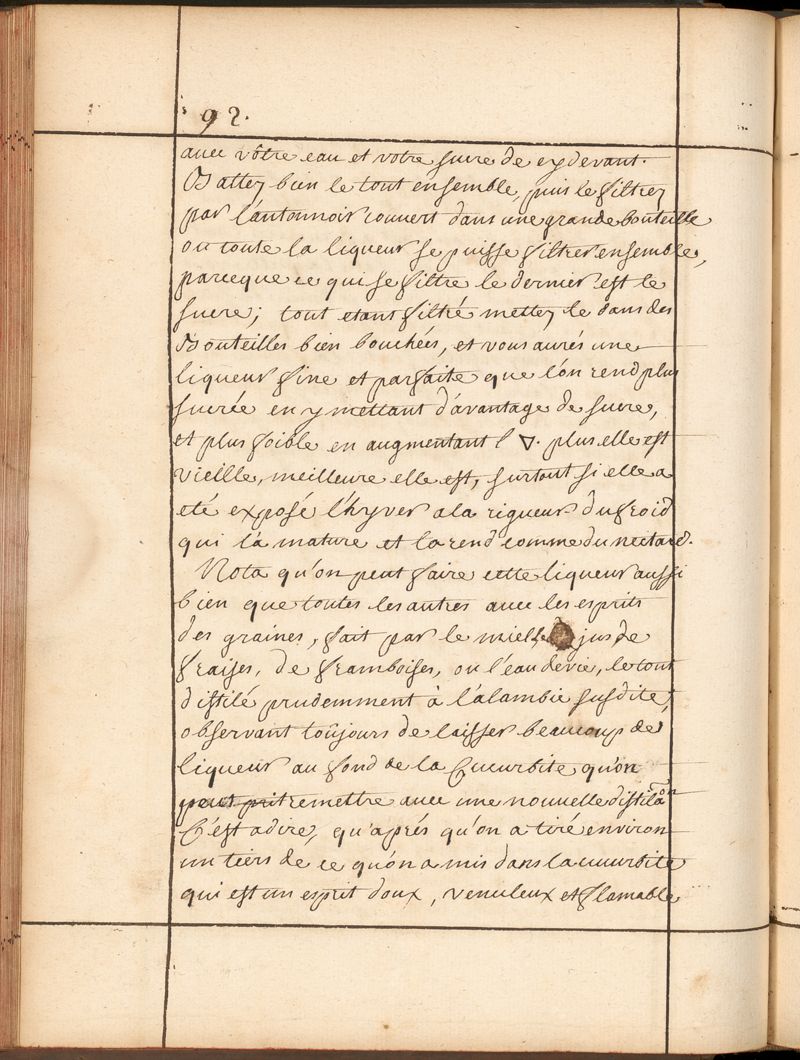 92.
avec vôtre eau et votre sucre de cy devant.
Battez bien le tout ensemble, puis le filtrez
par l'antonnoir couvert dans une grande bouteille
ou toute la liqueur se puisse filtrer ensemble,
parceque ce qui se filtre le dernier est le
sucre; tout etant filtré mettez le dans des
Bouteilles bien bouchées, et vous aurés une
liqueur fine et parfaite que l'on rend plus
sucrée en y mettant d'avantage de sucre,
et plus foible en augmentant l' ▽. plus elle est
viellle, meilleure elle est, surtout si elle a
eté exposé l'hyver a la rigueur du froid
qui la mature et la rend comme du nectard.
Nota qu'on peut faire cette liqueur aussi
bien que toutes les autres avec les esprits
des graines, fait par le miel, jus de
fraises, de framboises, ou l'eau de vie, le tout
distilé prudemment à l'alambic susdite,
observant toûjours de laisser beaucoup de
liqueur au fond de la Cucurbite qu'on
peut remettre avec une nouvelle distilaõn
C'est a dire, qu'aprés qu'on a tiré environ
un tiers de ce qu'on a mis dans la cucurbite
qui est un esprit doux, venuleux et flamable